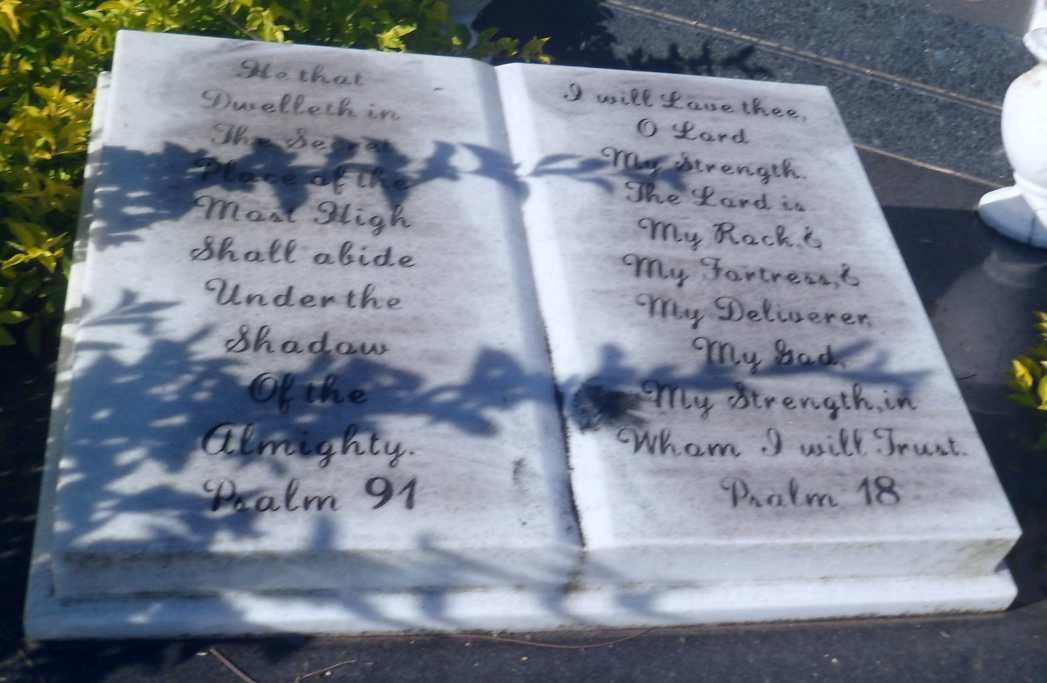 He that
Dwelleth in
The Secret
Place of the
Most High
Shall abide
Under the
Shadow
Of the
Almighty.
Psalm 91
I will Love thee,
O Lord
My Strength.
The Lord is
My Rock, &
My Fortress, &
My Deliverer,
My God,
My Strength, in
Whom I will Trust.
Psalm 18